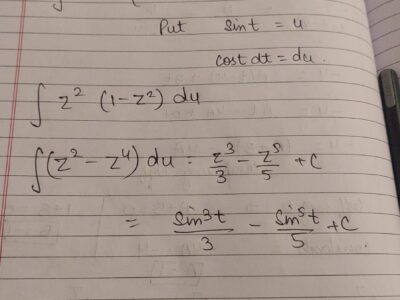 Put sint = u
cost dt = du.
∫ z² (1-z²) du
∫(z² - z⁴) du = z³/3 - z⁵/5 + c
= sin³t/3 - sin⁵t/5 + c